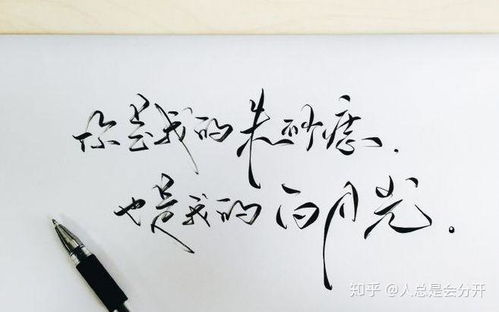 你是我的朱砂痣.
也是我的白月光.
知乎 @人总是会分开